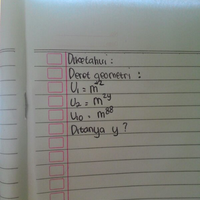 Diketahui :
Deret geometri :
U₁ = m⁻²
U₂ = m²ʸ
U₁₀ = m⁸⁸
Ditanya y ?